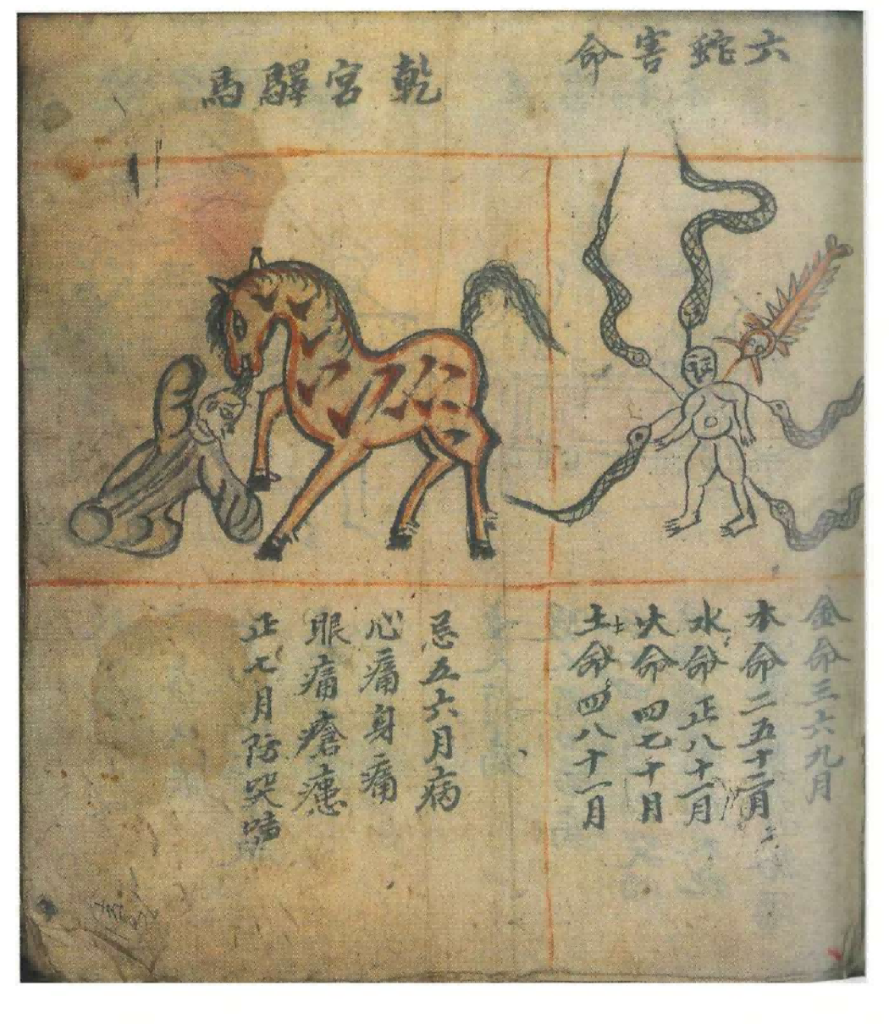 六蛇害命
金命三六九月
木命二五十二月
水命正八十一月
火命四七十月
土命四八十一月
乾宮驛馬
忌五六月病
心痛身痛
眼痛瘡
正七月防哭